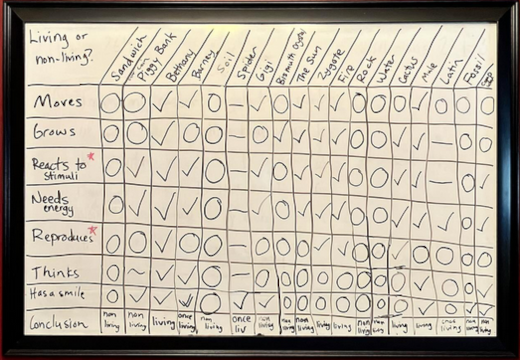 Living or
non-living?
Sandwich
Piggy Bank
Bethany
Barney
Soil
Spider
Gigi
The Sun
Zygote
Fire
Rock
Water
Cactus
Mule
Latin
Fossil
Moves
Grows
Reacts to*
stimuli
Needs
energy
Reproduces*
Thinks
Has a smile
Conclusion
non living
non living
living
once living
non living
once liv
non living
non living
non living
living
living
non living
non living
living
living
once living